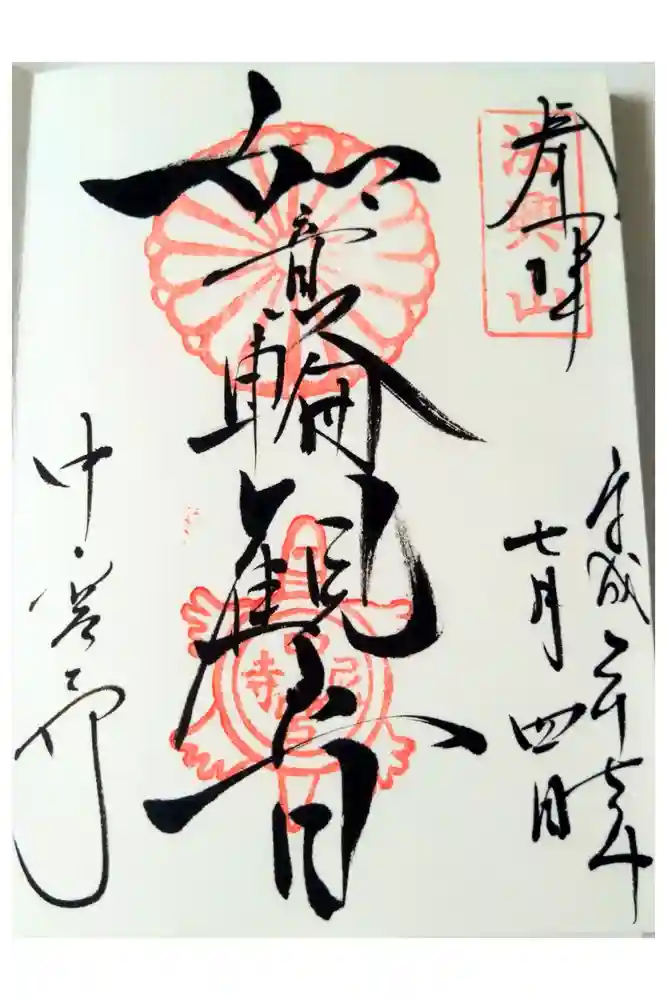 奉拝
法興山
平成二十七年
七月四日
如意輪観音
中宮寺